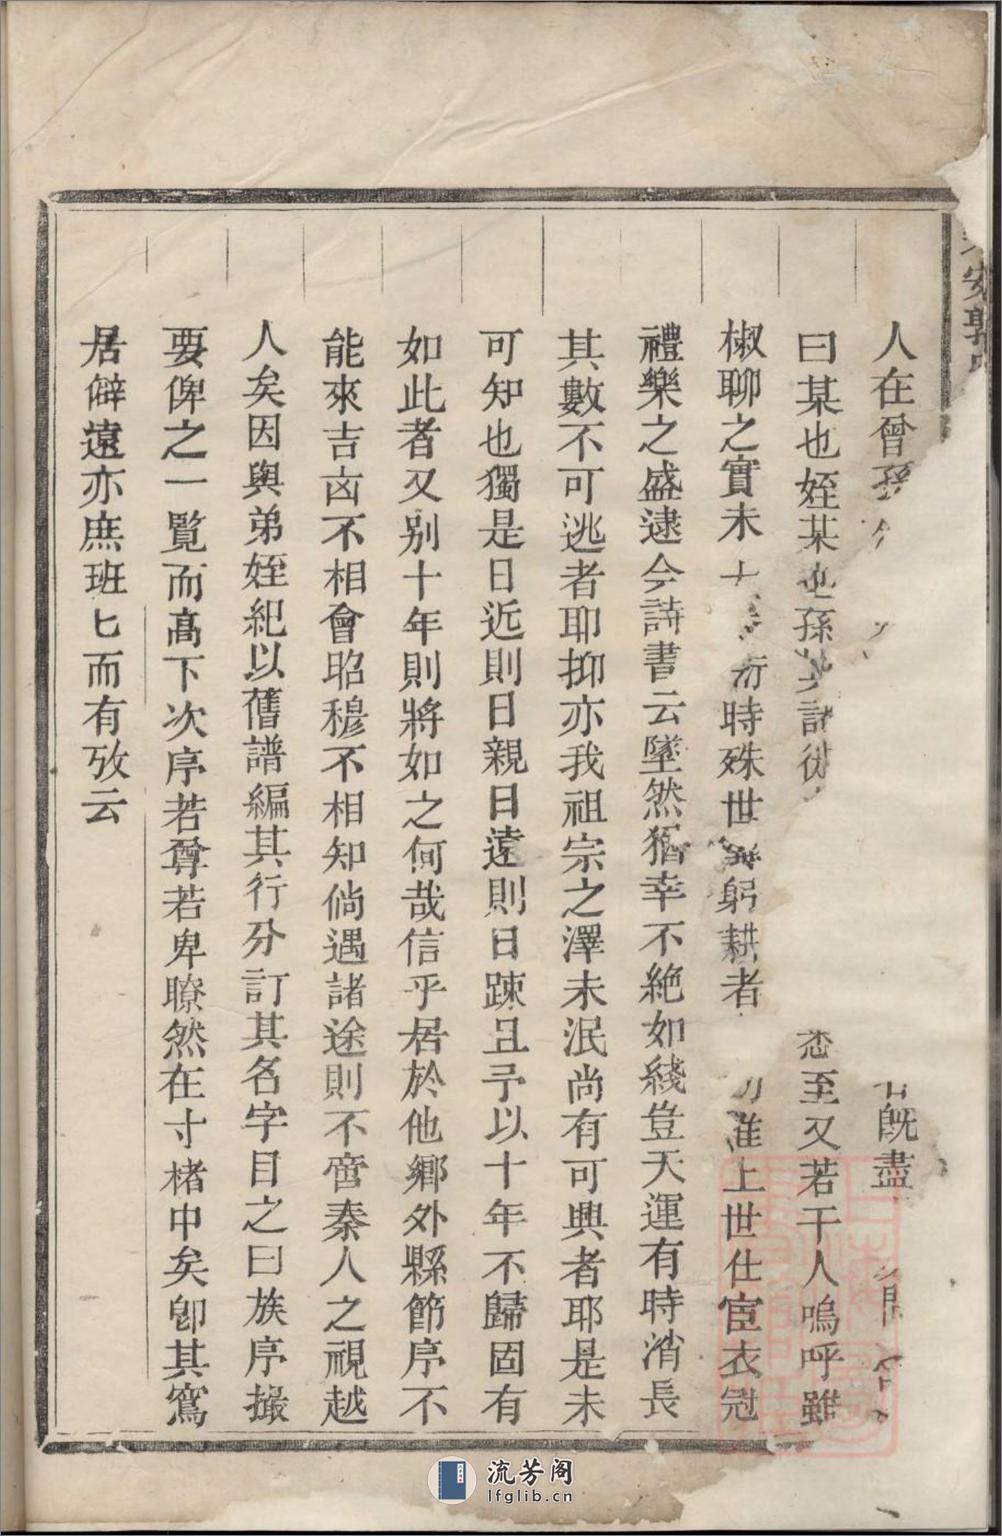 安郭
人在曾孫 旣盡
曰某也姪某也孫 諸從 悉至又若干人嗚呼雖
椒聊之實未 時殊世 躬耕者 惟上世仕宦衣冠
禮樂之盛逮今詩書云墜然猶幸不絶如綫豈天運有時消長
其數不可逃者耶抑亦我祖宗之澤未泯尚有可興者耶是未
可知也獨是日近則日親日遠則日踈且予以十年不歸固有
如此者又别十年則將如之何哉信乎居於他鄉外縣節序不
能來吉凶不相會昭穆不相知倘遇諸途則不啻秦人之視越
人矣因與弟姪紀以舊譜編其行分訂其名字目之曰族序撮
要俾之一覧而高下次序若尊若卑瞭然在寸楮中矣卽其寫
居僻遠亦庶班匕而有攷云
流芳阁
lfglib.cn